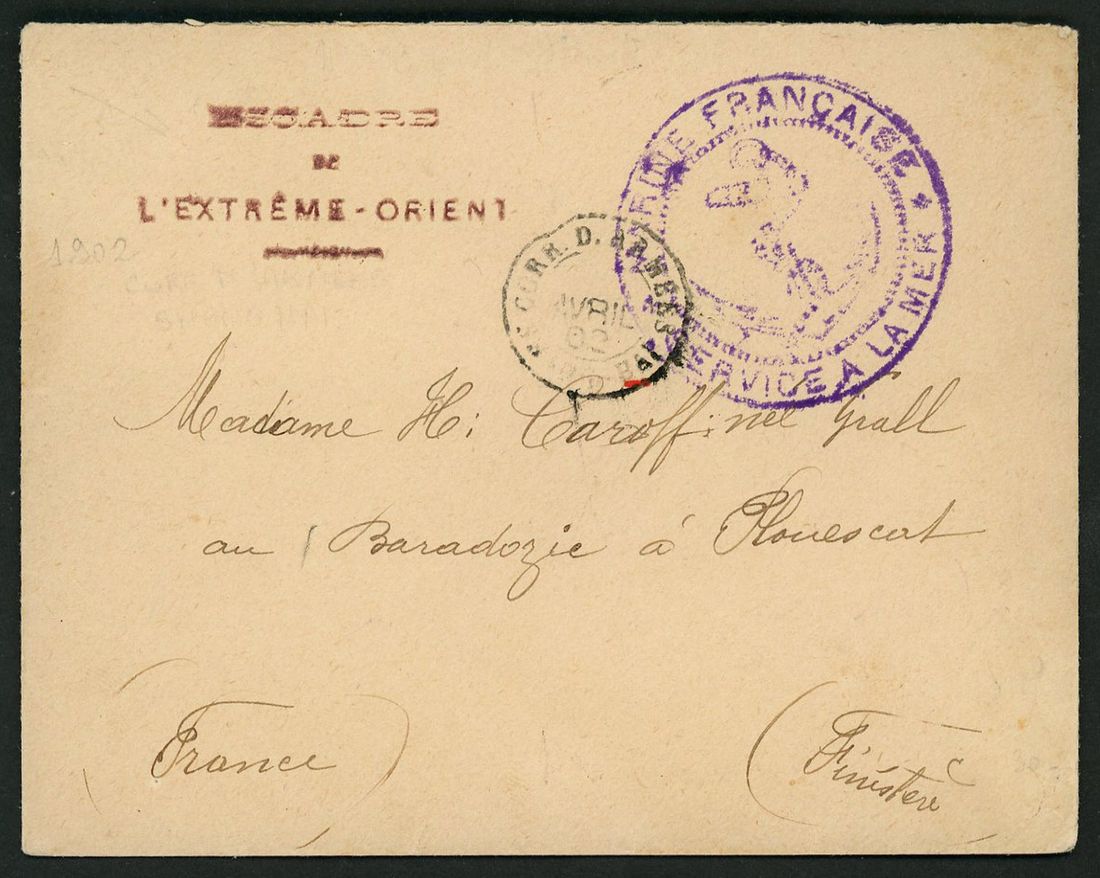 ESCADRE
DE
L'EXTRÊME-ORIENT
1902
MARINE FRANÇAISE ★ SERVICE A LA MER
CORR. D. ARMÉES
AVRIL
02
Madame H: Caroff: née Grall
au Baradozie à Plouescat
(France)
(Finistère)